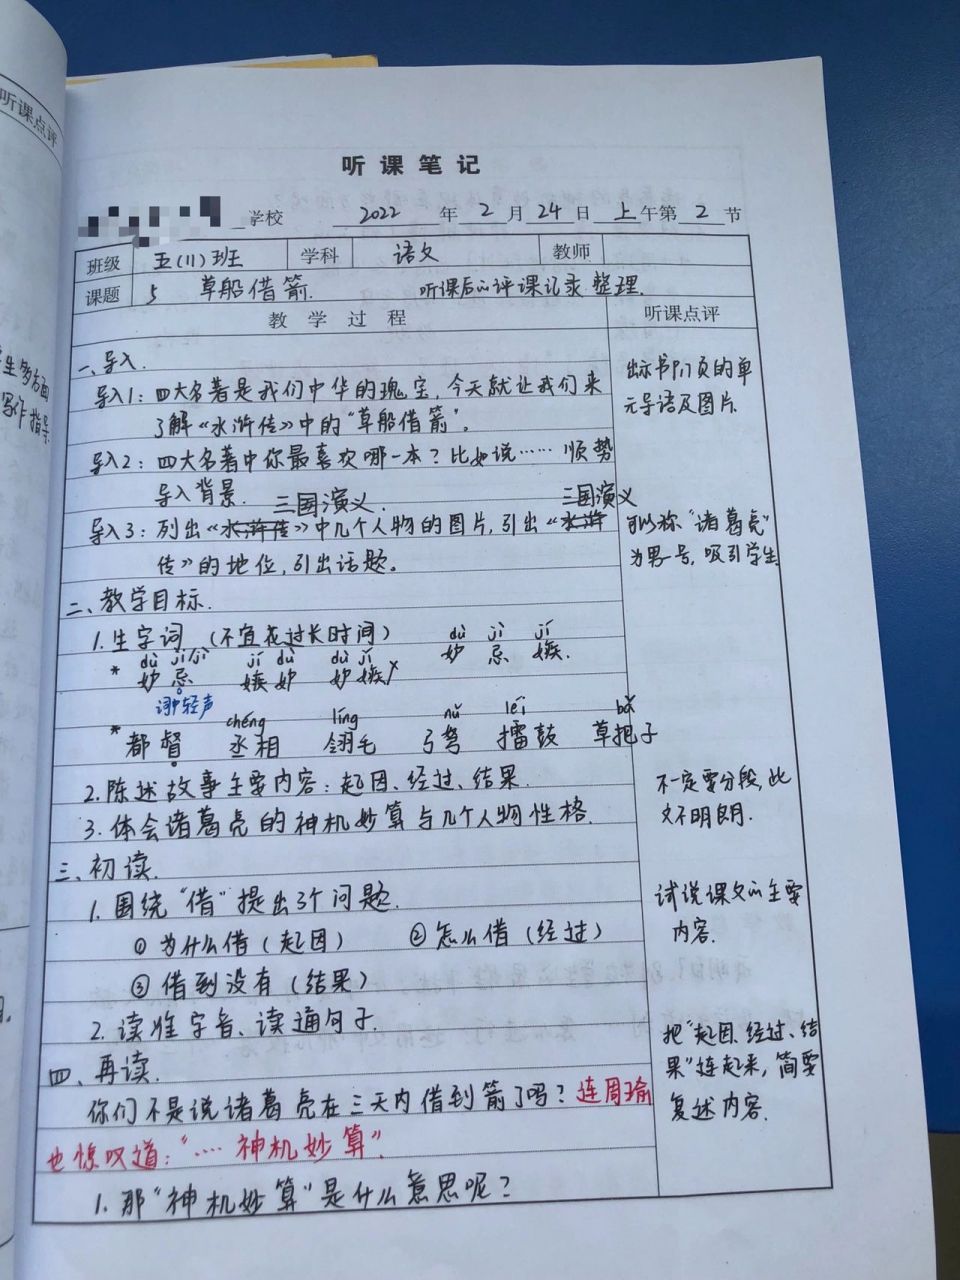 听课点评
生多方面
写作指导
听课笔记
学校 2022 年 2 月 24 日 上午第 2 节
班级 五(11)班 学科 语文 教师
课题 5 草船借箭. 听课后的评课记录整理.
教学过程 听课点评
一、导入.
导入1：四大名著是我们中华的瑰宝，今天就让我们来
了解《水浒传》中的“草船借箭”。
出示书P17页的单
元导语及图片.
导入2：四大名著中你最喜欢哪一本？比如说…… 顺势
导入背景.
三国演义. 三国演义
导入3：列出《水浒传》中几个人物的图片，引出《水浒
传》的地位，引出话题。
可以称“诸葛亮”
为男一号，吸引学生
二、教学目标.
1.生字词 (不宜花过长时间)
dù jì jí
妒 忌 嫉.
dù jì jí dù dù jí
* 妒忌 嫉妒 妒嫉 ×
词中轻声
chéng líng nǔ léi bǎ
* 都督 丞相 翎毛 弓弩 擂鼓 草把子
2.陈述故事主要内容：起因、经过、结果.
3.体会诸葛亮的神机妙算与几个人物性格.
不一定要分段，此
文不明朗.
三、初读.
1.围绕“借”提出3个问题.
①为什么借（起因） ②怎么借（经过）
③借到没有（结果）
试说课文的主要
内容.
2.读准字音、读通句子.
四、再读.
你们不是说诸葛亮在三天内借到箭了吗？连周瑜
也惊叹道：“…… 神机妙算”.
把“起因、经过、结
果”连起来，简要
复述内容.
1.那“神机妙算”是什么意思呢？